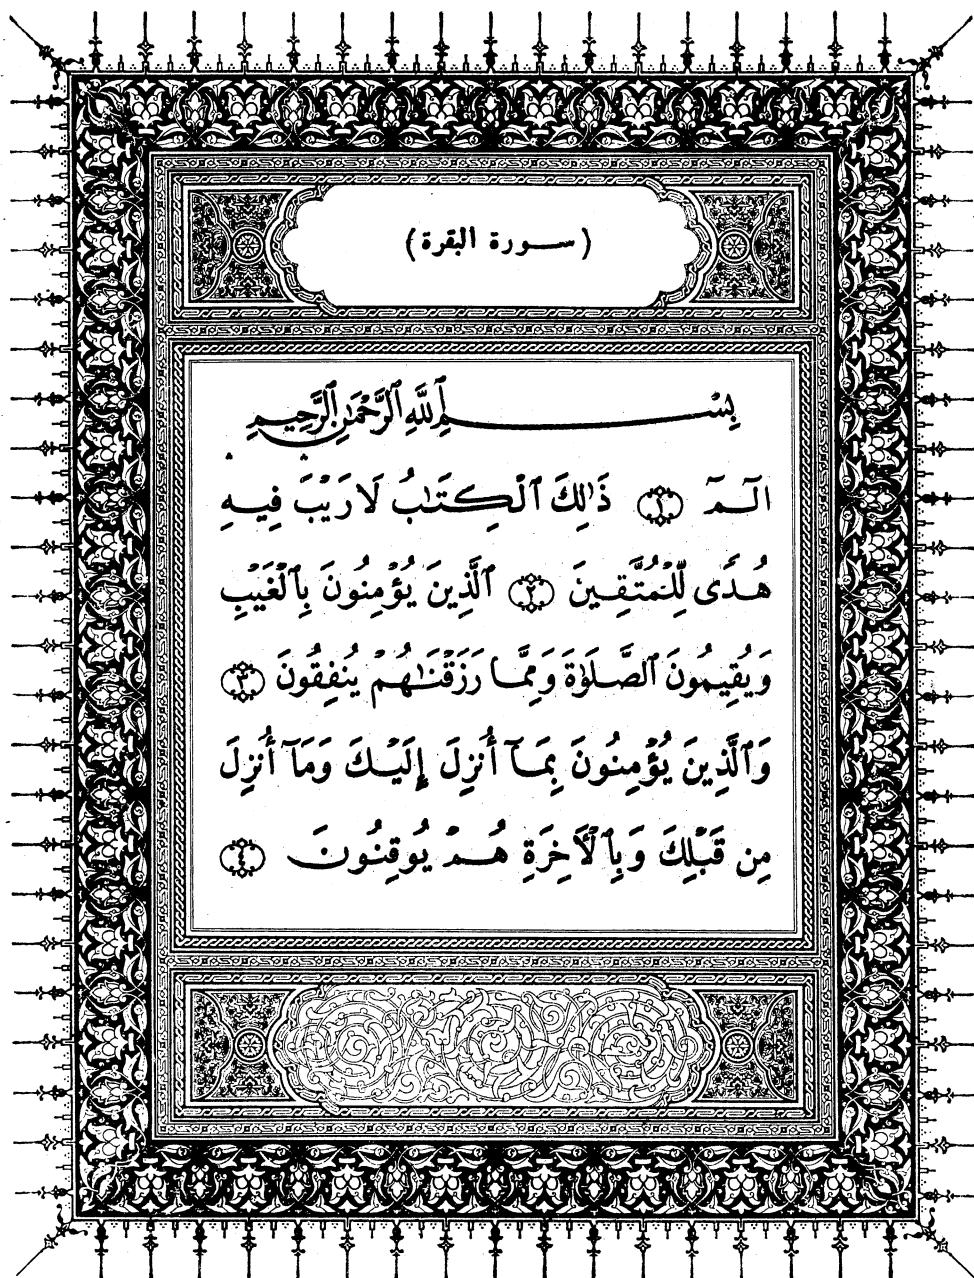 (سورة البقرة)
بِسْمِ ٱللَّهِ ٱلرَّحْمَٰنِ ٱلرَّحِيمِ
الٓمٓ ١ ذَٰلِكَ ٱلْكِتَٰبُ لَا رَيْبَ فِيهِ
هُدًى لِّلْمُتَّقِينَ ٢ ٱلَّذِينَ يُؤْمِنُونَ بِٱلْغَيْبِ
وَيُقِيمُونَ ٱلصَّلَوٰةَ وَمِمَّا رَزَقْنَٰهُمْ يُنفِقُونَ ٣
وَٱلَّذِينَ يُؤْمِنُونَ بِمَآ أُنزِلَ إِلَيْكَ وَمَآ أُنزِلَ
مِن قَبْلِكَ وَبِٱلْأَخِرَةِ هُمْ يُوقِنُونَ ٤